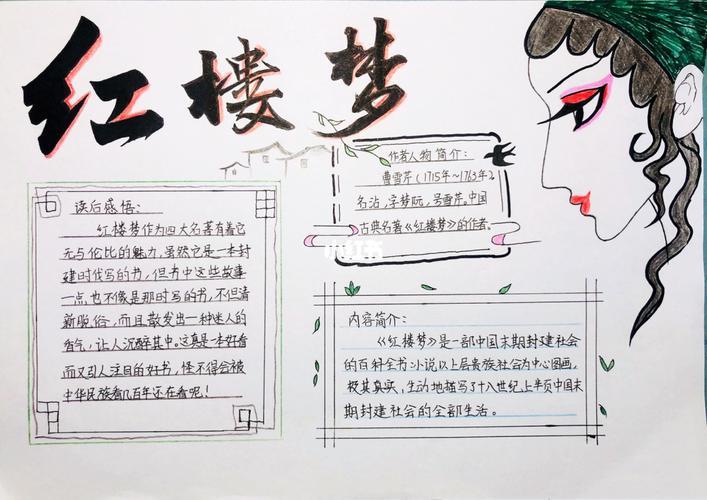 红楼梦
作者人物简介：
曹雪芹（1715年～1763年）
名沾，字梦阮，号雪芹。中国
古典名著《红楼梦》的作者。
小红书
读后感悟：
红楼梦作为四大名著有着它
无与伦比的魅力，虽然它是一本封
建时代写的书，但书中这些故事
一点也不像是那时写的书，不但清
新脱俗，而且散发出一种迷人的
香气，让人沉醉其中。这真是一本好看
而又引人注目的好书，怪不得会被
中华民族看几百年还在看呢！
内容简介：
《红楼梦》是一部中国末期封建社会
的百科全书：小说以上层贵族社会为中心图画，
极其真实，生动地描写了十八世纪上半页中国末
期封建社会的全部生活。